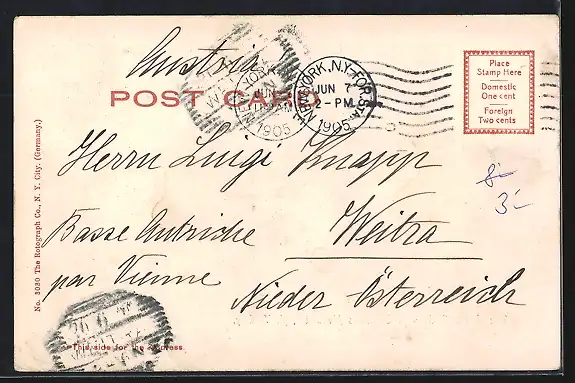 Austria
POST CARD
NEW YORK, N.Y-FOR. STA.
JUN 7
-PM
1905
YORK
JUN
1905
Place
Stamp Here
Domestic
One cent
Foreign
Two cents
Herrn Luigi Knapp
8-
3-
Basse Autriche
Weitra
par Vienne
Nieder Österreich
No. 3030 The Rotograph Co., N. Y. City. (Germany.)
This side for the address